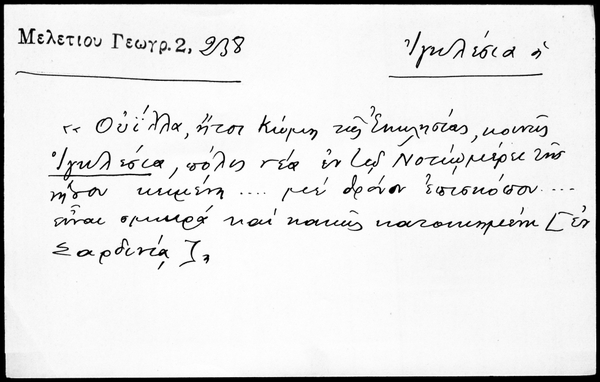 Μελετίου Γεωγρ. 2, 238
Ἰγκλέσια ἡ
« Οὐίλλα, ἤτοι Κώμη τῆς Ἐκκλησίας, κοινῶς
Ἰγκλέσια, πόλις νέα ἐν τῷ Νοτίῳ μέρει τῆς
νήσου κειμένη .... μὲ θρόνον ἐπισκόπου ....
εἶναι σμικρά καί κακῶς κατοικημένη [ἐν
Σαρδινίᾳ].